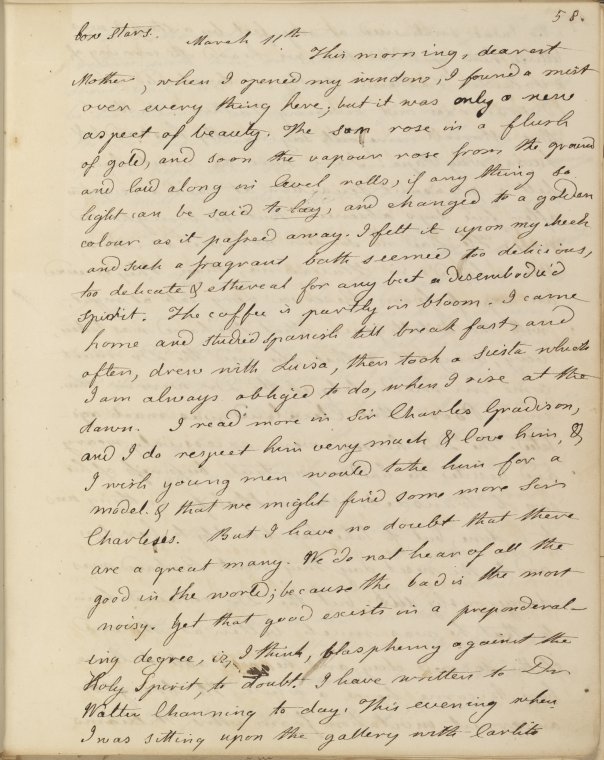 58.
bow stars. March 11th
This morning, dearest
Mother, when I opened my window, I found a mist
over every thing here; but it was only a new
aspect of beauty. The sun rose in a flush
of gold, and soon the vapour rose from the ground
and laid along in level rolls, if any thing so
light can be said to lay, and changed to a golden
colour as it passed away. I felt it upon my cheek
and such a fragrant bath seemed too delicious,
too delicate & ethereal for any but a disembodie'd
spirit. The coffee is partly in bloom. I came
home and studied Spanish till break fast, and
after, drew with Luisa, then took a siesta which
I am always obliged to do, when I rise at the
dawn. I read more in Sir Charles Gradison,
and I do respect him very much & love him, &
I wish young men would take him for a
model. & that we might find some more Sir
Charleses. But I have no doubt that there
are a great many. We do not hear of all the
good in the world; because the bad is the most
noisy. Yet that good exists in a preponderat-
ing degree, is, I think, blasphemy against the
Holy Spirit, to doubt. I have written to Dr
Walter Channing to day. This evening when
I was sitting upon the gallery with Carlito